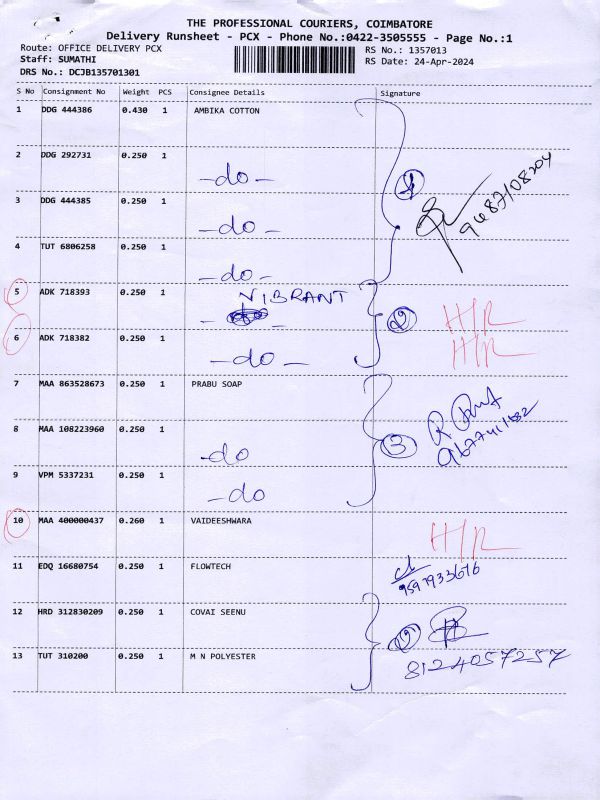 THE PROFESSIONAL COURIERS, COIMBATORE
Delivery Runsheet - PCX - Phone No.:0422-3505555 - Page No.:1
Route: OFFICE DELIVERY PCX RS No.: 1357013
Staff: SUMATHI RS Date: 24-Apr-2024
DRS No.: DCJB135701301
S No Consignment No Weight PCS Consignee Details Signature
1 DDG 444386 0.430 1 AMBIKA COTTON
2 DDG 292731 0.250 1 -do-
3 DDG 444385 0.250 1 -do-
9487108204
4 TUT 6806258 0.250 1 -do-
5 ADK 718393 0.250 1 VIBRANT H/R
6 ADK 718382 0.250 1 -do- H/R
7 MAA 863528673 0.250 1 PRABU SOAP
8 MAA 108223960 0.250 1 -do 3
9 VPM 5337231 0.250 1 -do
10 MAA 400000437 0.260 1 VAIDEESHWARA H/R
11 EDQ 16680754 0.250 1 FLOWTECH
9597933676
12 HRD 312830209 0.250 1 COVAI SEENU
13 TUT 310200 0.250 1 M N POLYESTER 8124057257